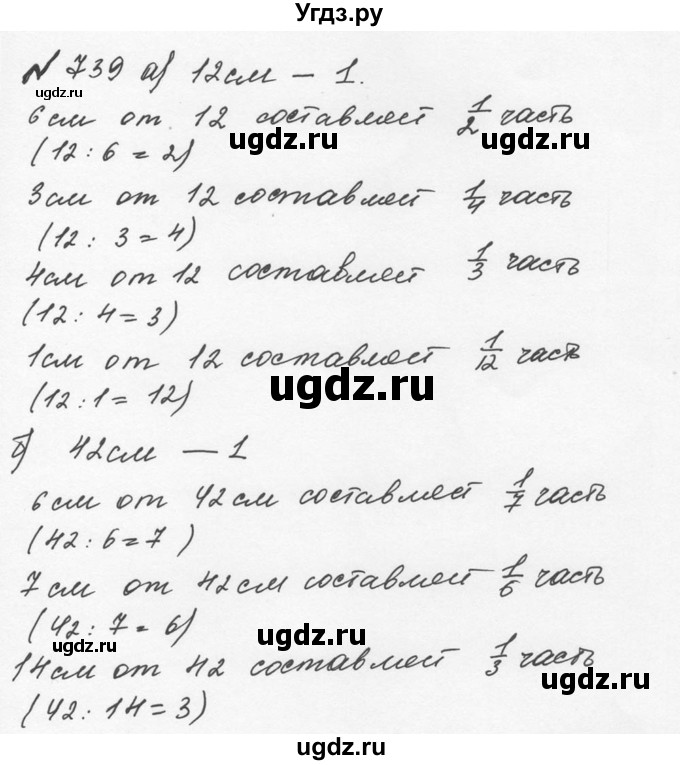 Угдз.ру
№ 739 а) 12см — 1.
6 см от 12 составляет 1/2 часть
(12 : 6 = 2)
3см от 12 составляет 1/4 часть
(12 : 3 = 4)
4см от 12 составляет 1/3 часть
(12 : 4 = 3)
1см от 12 составляет 1/12 часть
(12 : 1 = 12)
б) 42см — 1
6 см от 42см составляет 1/7 часть
(42 : 6 = 7)
7см от 42см составляет 1/6 часть
(42 : 7 = 6)
14см от 42 составляет 1/3 часть
(42 : 14 = 3)
ugdz.ru
ugdz.ru
ugdz.ru
ugdz.ru
ugdz.ru
ugdz.ru
ugdz.ru
ugdz.ru